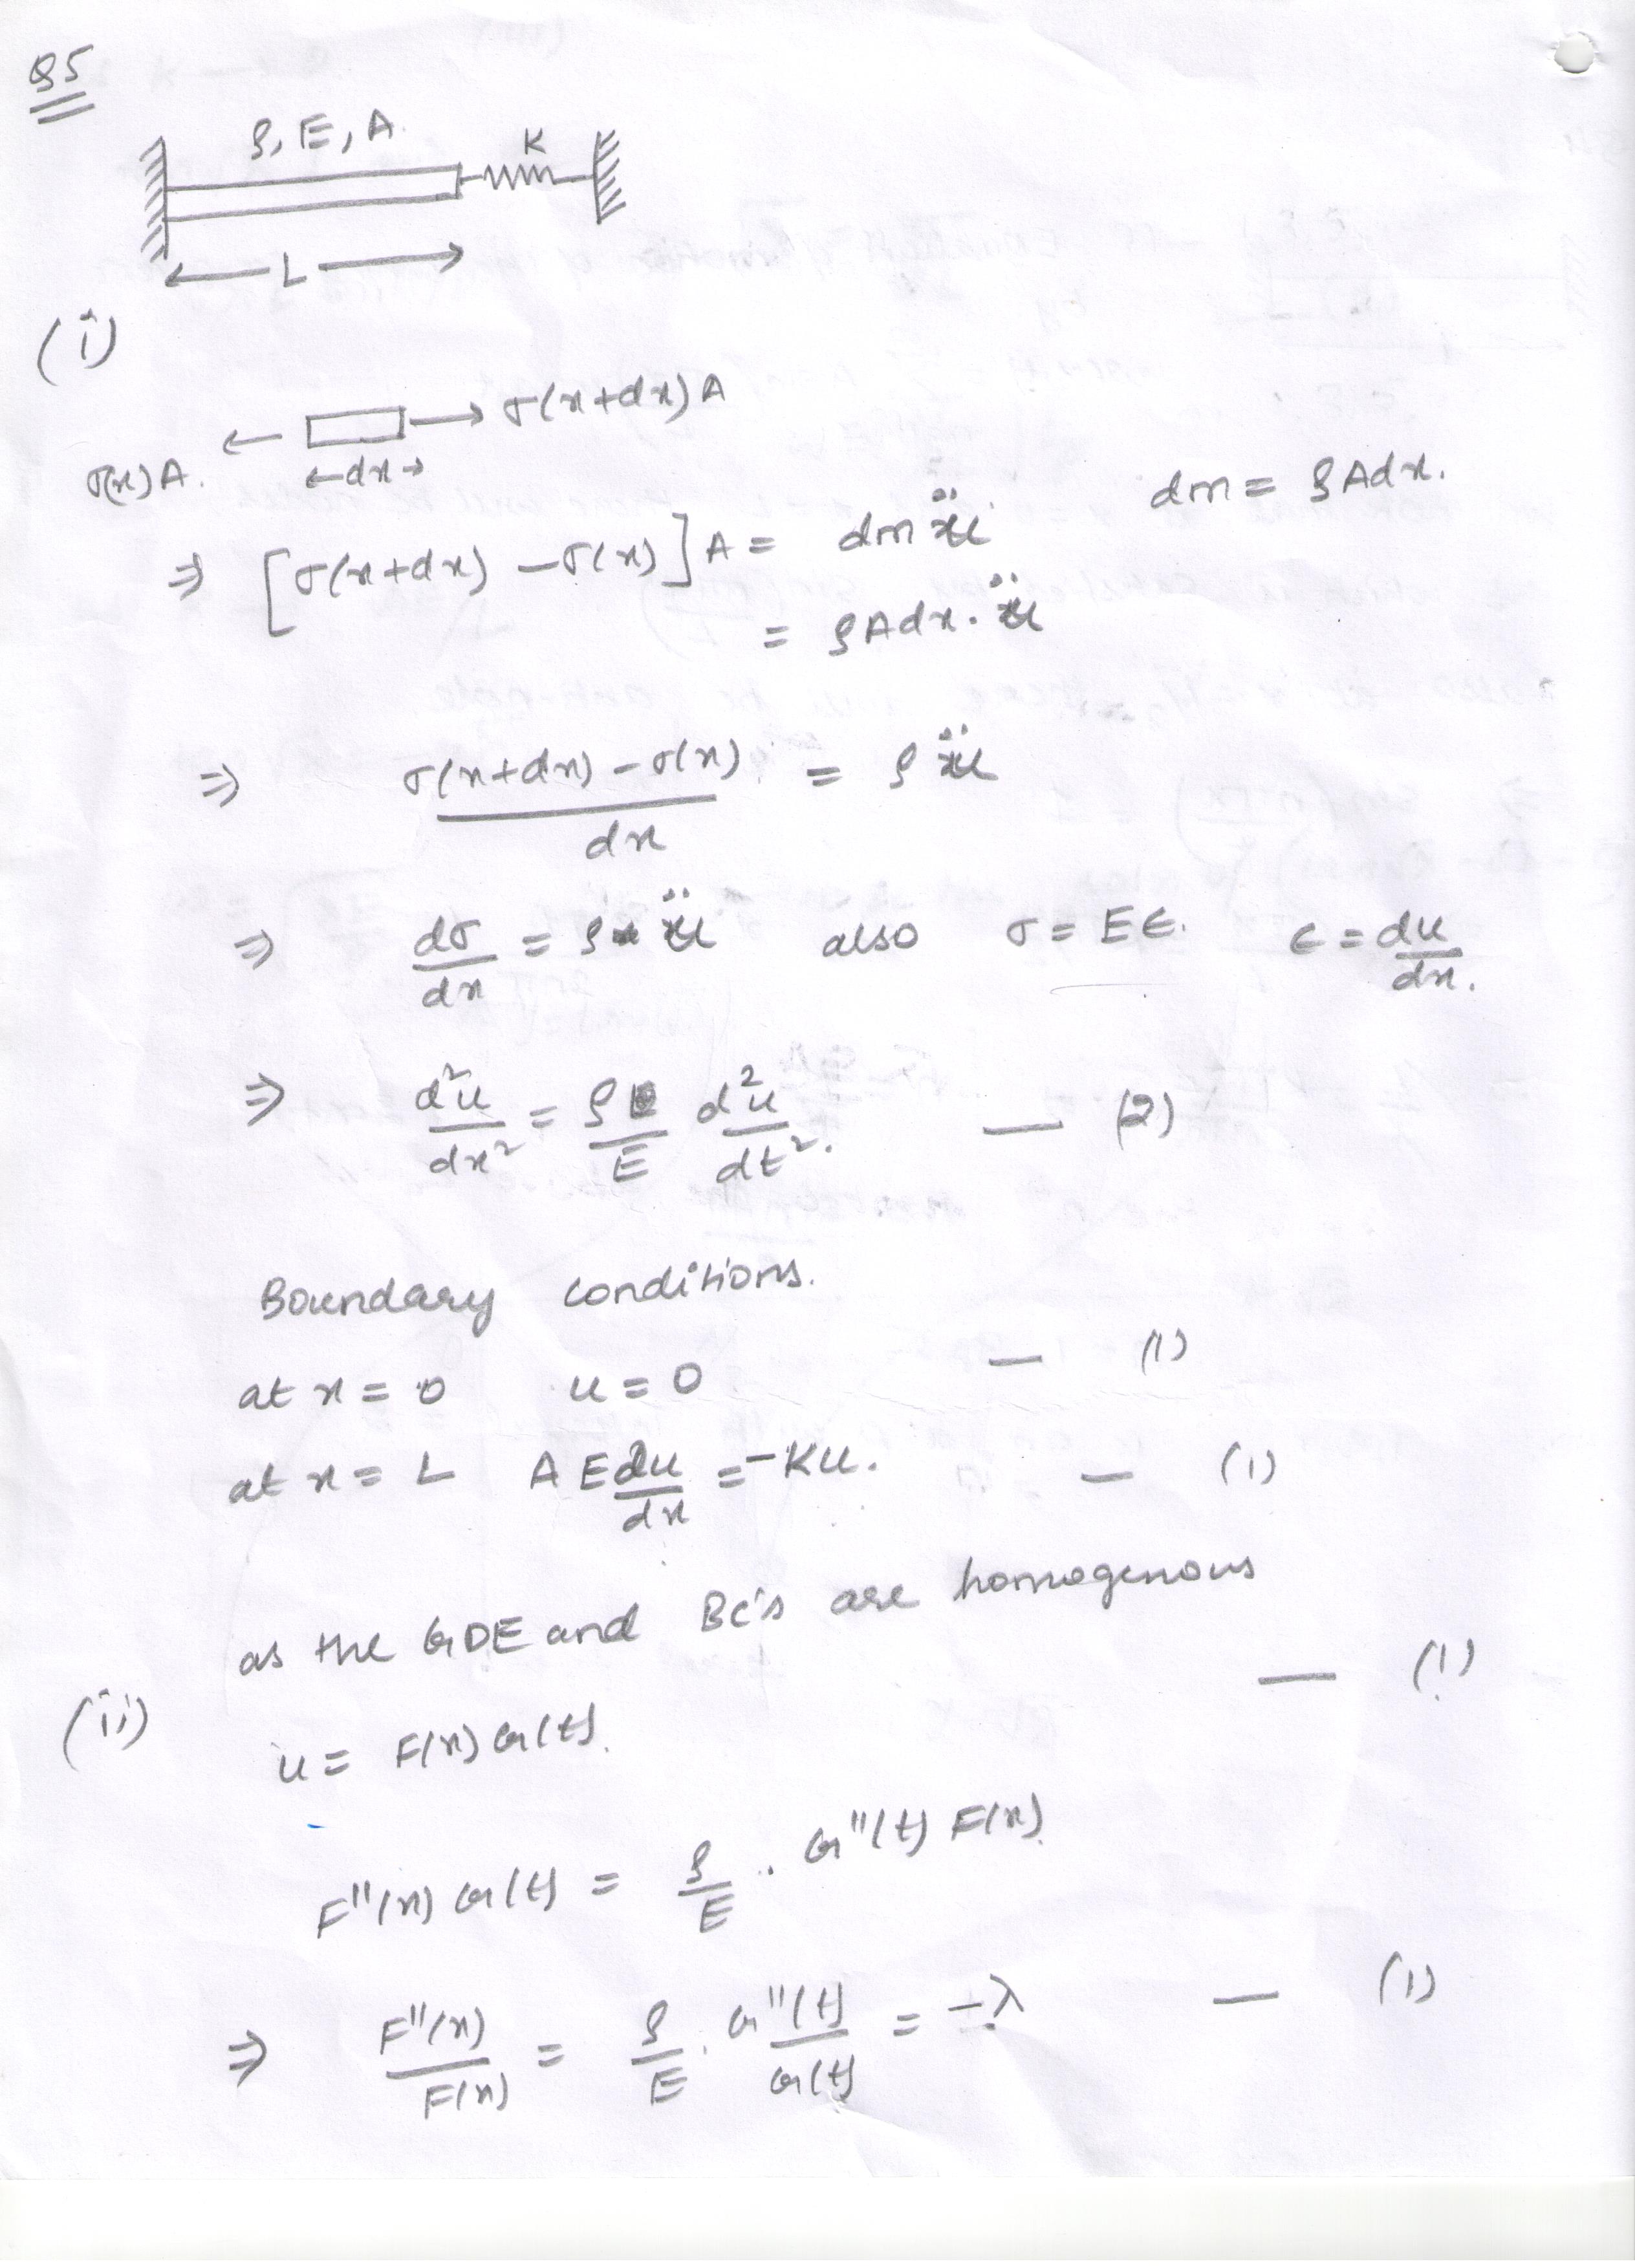 Q5
ρ, E, A
K
L
(i)
σ(x)A. σ(x+dx)A
dx
⇒ [σ(x+dx) - σ(x)]A = dm ü dm = ρAdx.
= ρAdx. ü
⇒ σ(x+dx) - σ(x) / dx = ρ ü
⇒ dσ/dx = ρ ü also σ = Eϵ. ϵ = du/dx.
⇒ d²u/dx² = ρ/E d²u/dt². — (2)
Boundary conditions.
at x = 0 u = 0 — (1)
at x = L AE du/dx = -Ku. — (1)
as the GDE and BC's are homogenous
— (1)
(ii) u = F(x) G(t).
F''(x) G(t) = ρ/E . G''(t) F(x).
⇒ F''(x)/F(x) = ρ/E . G''(t)/G(t) = -λ — (1)